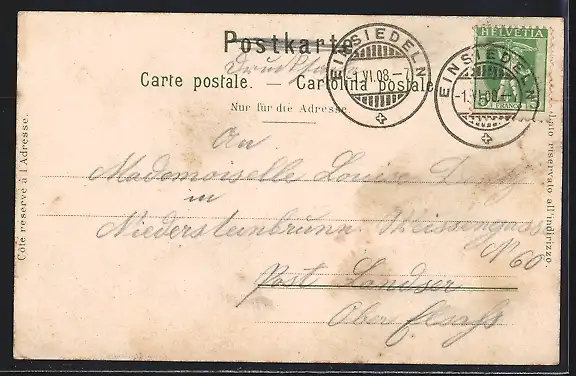 Postkarte
Drucksache
Carte postale. — Cartolina postale
Nur für die Adresse
EINSIEDELN
-1.VI.08.-7
EINSIEDELN
-1.VI.08.-7
HELVETIA
5
FRANCO
Côté réservé à l'Adresse.
An
Mademoiselle Louise
in
Niedersteinbrunn. Weissengasse
No 60
Post Landser
Ober Elsaß
riservato all'indirizzo.